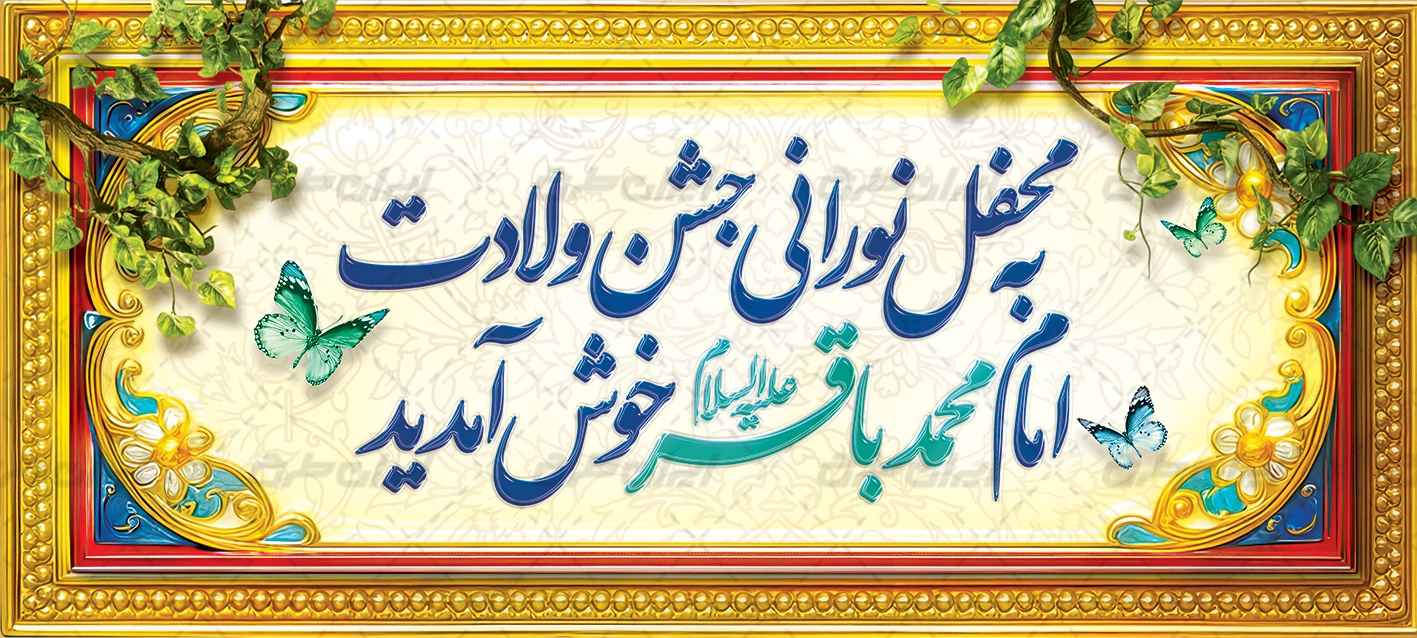 به محفل نورانی جشن ولادت
امام محمد باقر علیه السلام خوش آمدید
ایران طرح